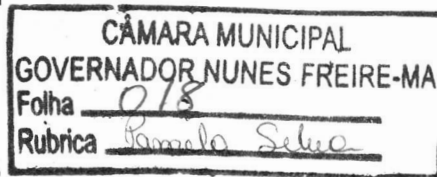 CÂMARA MUNICIPAL
GOVERNADOR NUNES FREIRE-MA
Folha 018
Rubrica Pamela Silva